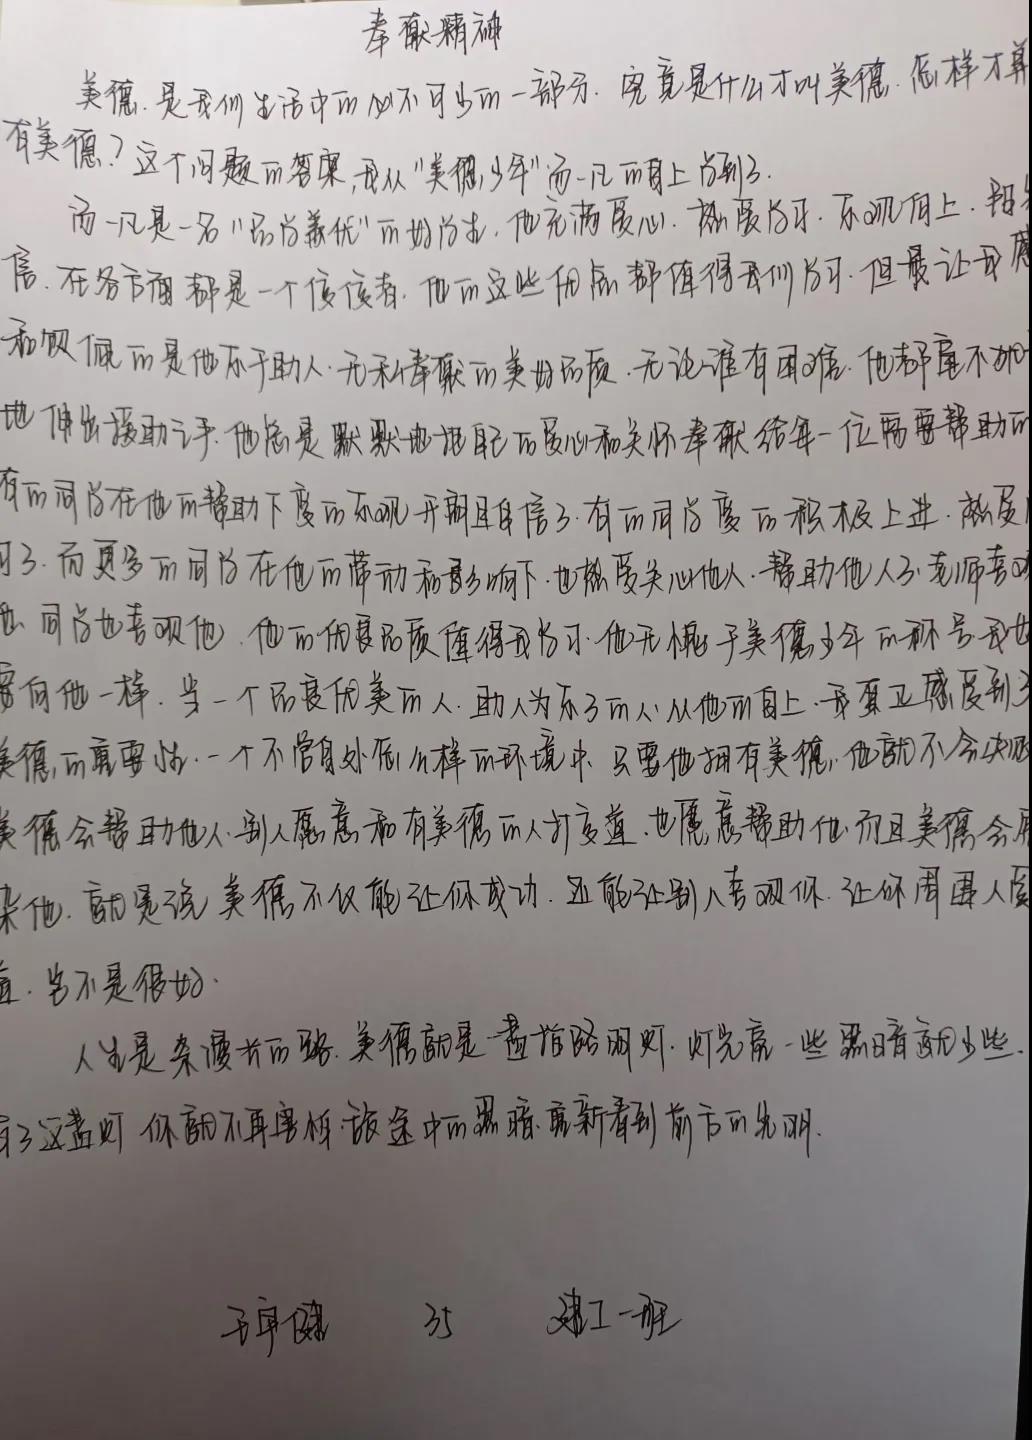 奉献精神
美德.是我们生活中的必不可少的一部分.究竟是什么才叫美德.怎样才算
有美德?这个问题的答案,我从"美德少年"而一凡的身上学到了.
而一凡是一名"品学兼优"的好学生,他充满爱心.热爱学习.乐观向上.
信.在各方面都是一个佼佼者.他的这些优点都值得我们学习.但最让我感
和钦佩的是他乐于助人.无私奉献的美好品质.无论谁有困难.他都毫不
地伸出援助之手.他总是默默地把自己的爱心和关怀奉献给每一位需要帮助的
有的同学在他的帮助下变的乐观开朗且自信了.有的同学变的积极上进.热爱
习了.而更多的同学在他的带动和影响下.也热爱关心他人.帮助他人了.老师喜欢
他.同学也喜欢他.他的优良品质值得我学习.他无愧于美德少年的称号.我也
要向他一样.当一个品良优美的人.助人为乐了的人.从他的身上.我真正感受到了
美德,的重要性.一个不管身处怎么样的环境中.只要他拥有美德,他就不会失败
美德会帮助他人.别人愿意和有美德的人打交道.也愿意帮助他.而且美德会
染他.就是说美德不仅能让你成功.还能让别人喜欢你.让你周围人受
益.岂不是很好.
人生是条漫长的路.美德就是一盏指路明灯.灯光亮一些黑暗就少些.
有了这盏灯你就不再害怕旅途中的黑暗.重新看到前方的光明.
35 建工一班